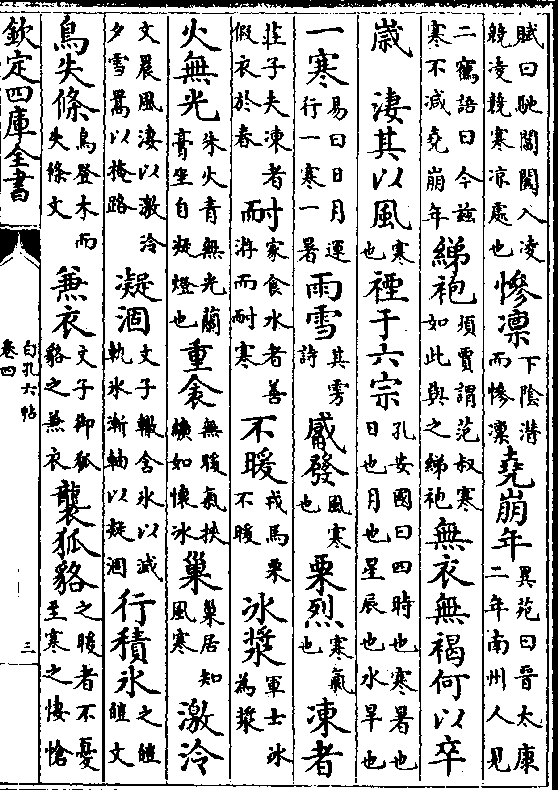 賦曰馳閶闔入凌兢淩兢寒凉處也慘凛下陰潛而慘凛堯崩年異苑曰晉太康二年南州人見
二鶴語曰今兹寒不減堯崩年綈袍須賈謂范叔寒如此與之綈袍無衣無褐何以卒
歲 淒其以風寒也禋于六宗孔安國曰四時也寒暑也日也月也星辰也水旱也
一寒易曰日月運行一寒一暑雨雪其雱詩觱發風寒也栗烈寒氣也凍者
莊子夫凍者假衣於春耐寒食水者善游而耐寒不暖戎馬栗不暖冰漿軍士冰為漿
火無光朱火青無光蘭膏坐自凝燈也重衾無暖氣挾纊如懷冰巢巢居知風寒激泠
文晨風淒以激泠夕雪暠以掩路凝涸文子轍含冰以滅軌水漸軸以凝涸行積氷之皚皚文
鳥失條鳥登木而失條文兼衣文子御狐貉之兼衣襲狐貉之暖者不憂至寒之悽愴
欽定四庫全書
白孔六帖
卷四
三